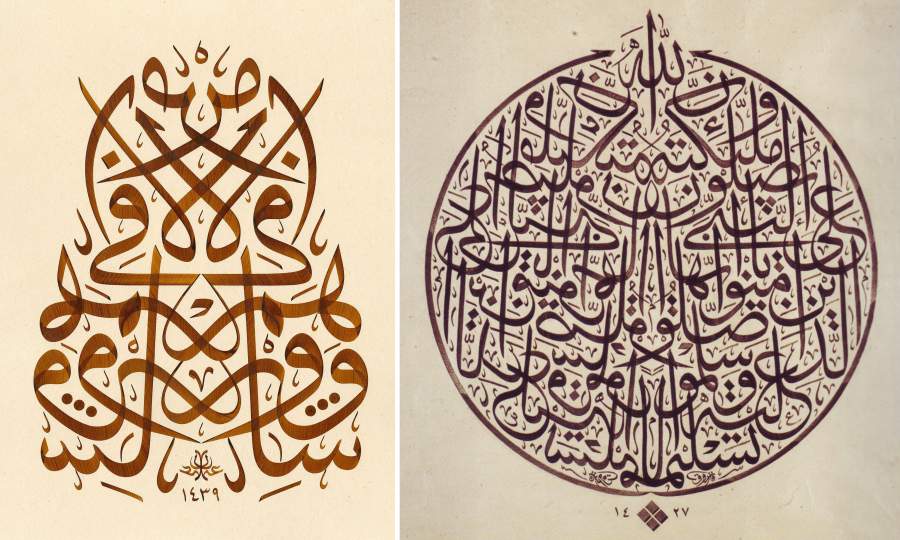 يسأله من في السموات والأرض
١٤٣٩
إن الله وملائكته يصلون على النبي يا أيها الذين آمنوا صلوا عليه وسلموا تسليما
١٤٢٧